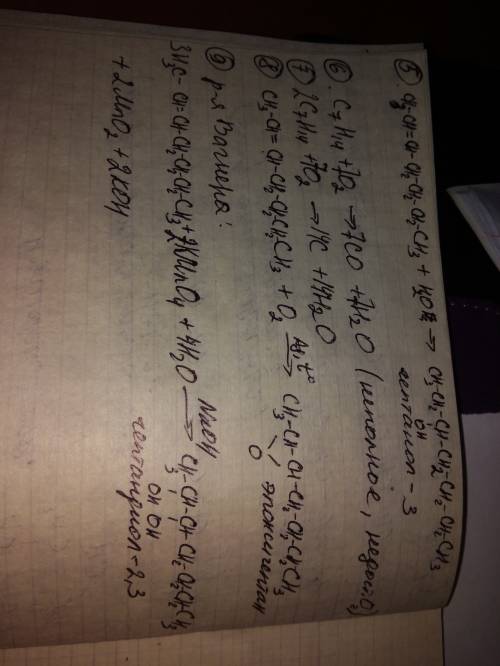 ⑤ CH3-CH=CH-CH2-CH2-CH2-CH3 + H2O → CH3CH2-CH-CH2-CH2-CH2-CH3
OH
гептанол-3
⑥ C7H14 + 7O2 → 7CO + 7H2O (неполное, недост. O2)
⑦ 2C7H14 + 7O2 → 14C + 14H2O
⑧ CH3-CH=CH-CH2-CH2CH2CH3 + O2 Ag, t° → CH3-CH-CH-CH2-CH2-CH2CH3
O
⑨ р-я Вагнера:
3H3C-CH=CH-CH2CH2CH2-CH3 + 2KMnO4 + 4H2O → CH3-CH-CH-CH2-CH2CH2CH3
OH OH
+ 2MnO2 + 2KOH
гептандиол-2,3